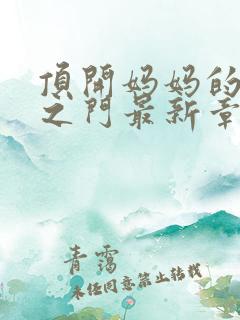 頂開妈妈的
之门最新章
青霭
未经同意禁止转载